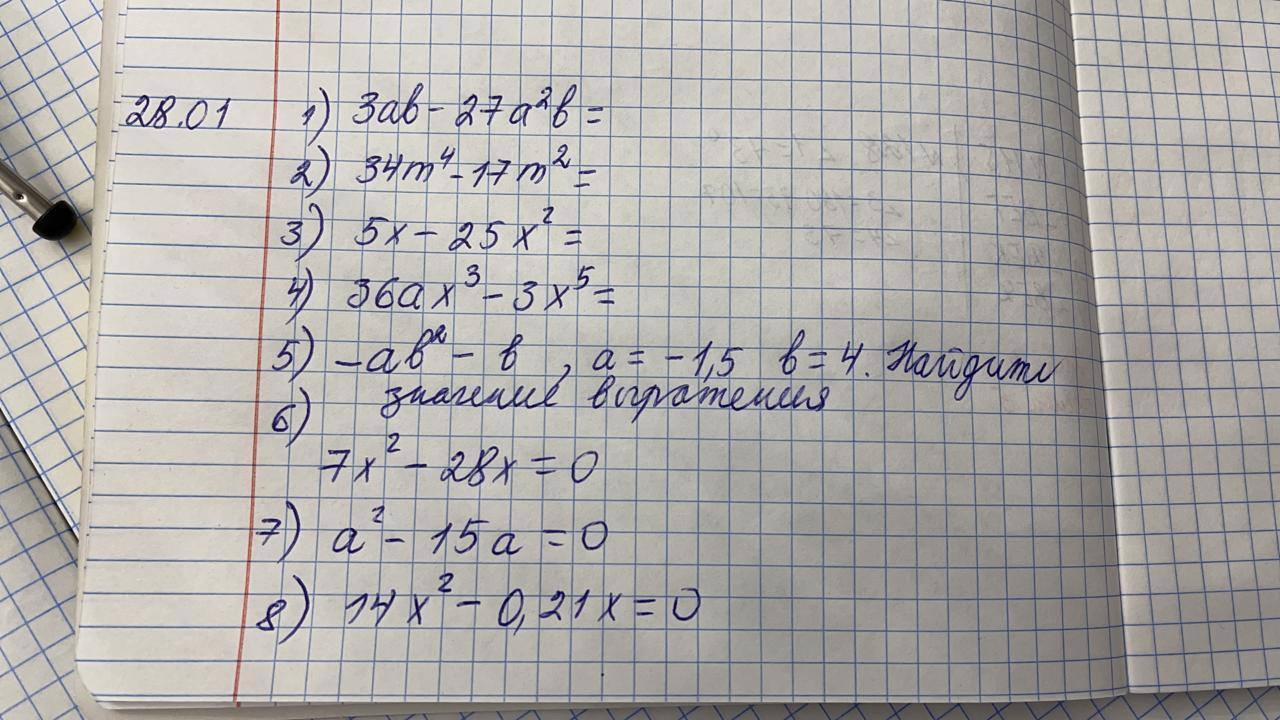 28.01 1) 3ab - 27a²b =
2) 34m⁴ - 17m² =
3) 5x - 25x² =
4) 36ax³ - 3x⁵ =
5) -ab² - b , a = -1,5 b = 4. Найдите
значение выражения
6)
7x² - 28x = 0
7) a² - 15a = 0
8) 14x² - 0,21x = 0